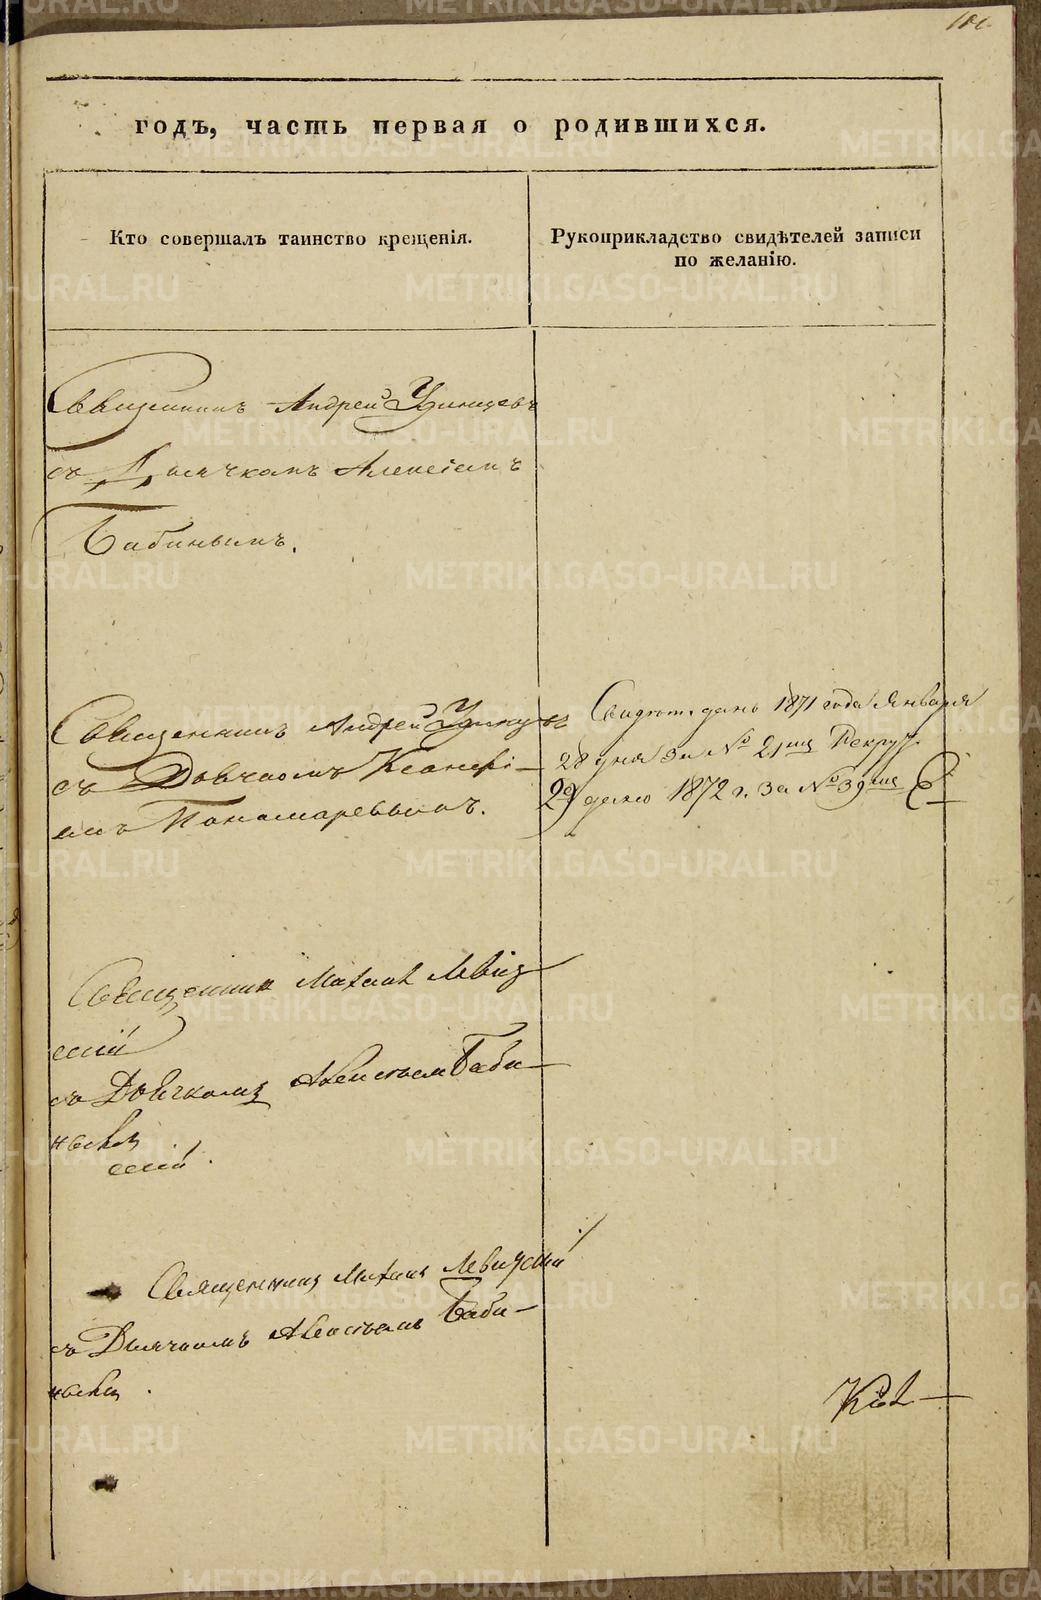 годъ, часть первая о родившихся.
Кто совершалъ таинство крещенія.
Рукоприкладство свидѣтелей записи
по желанію.
Священникъ Андрей Удинцевъ
съ Дьячкомъ Алексіемъ
Бабинымъ.
Священникъ Андрей Удинцевъ
съ Дьячкомъ
Пономаревымъ.
Свидѣт. дано 1871 года Января
28 дня за № 21мъ Рекрут.
2) дано 1872 г. за № 39мъ
Священникъ Михаилъ Левиц
скій
съ Дьячкомъ Алексѣемъ Баби-
нымъ
Священникъ Михаилъ Левицкій
съ Дьячкомъ Алексѣемъ Баби-
нымъ.
METRIKI.GASO-URAL.RU